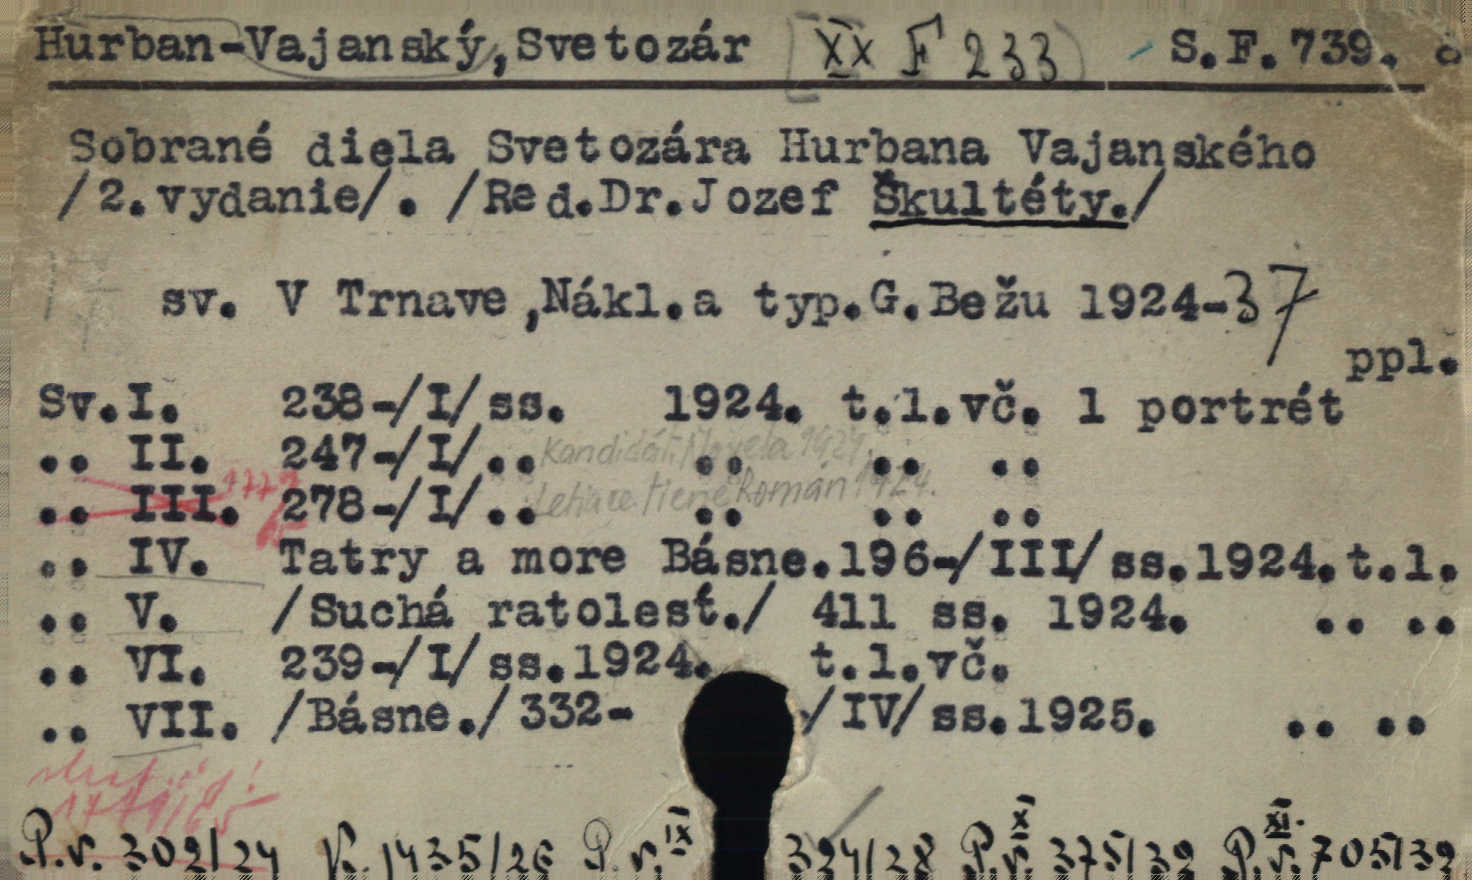 Hurban-Vajanský, Svetozár [XX F 233) S.F.739. 8
Sobrané diela Svetozára Hurbana Vajanského
/2.vydanie/. /Red.Dr.Jozef Škultéty./
sv. V Trnave ,Nákl.a typ.G.Bežu 1924-37
ppl.
Sv.I. 238-/I/ss. 1924. t.l.vč. 1 portrét
.. II. 247-/I/.. .. .. ..
Kandidát. Novela 1924.
.. III. 278-/I/.. .. .. ..
Letiace tiene Román 1924.
.. IV. Tatry a more Básne.196-/III/ss.1924.t.l.
.. V. /Suchá ratolesť./ 411 ss. 1924. .. ..
.. VI. 239-/I/ss.1924. t.l.vč.
.. VII. /Básne./332- /IV/ss.1925. .. ..
P.v. 302/24 K. 1435/26 P.v. IX 324/38 P.v. X 375/39 P.v. XI. 705/39